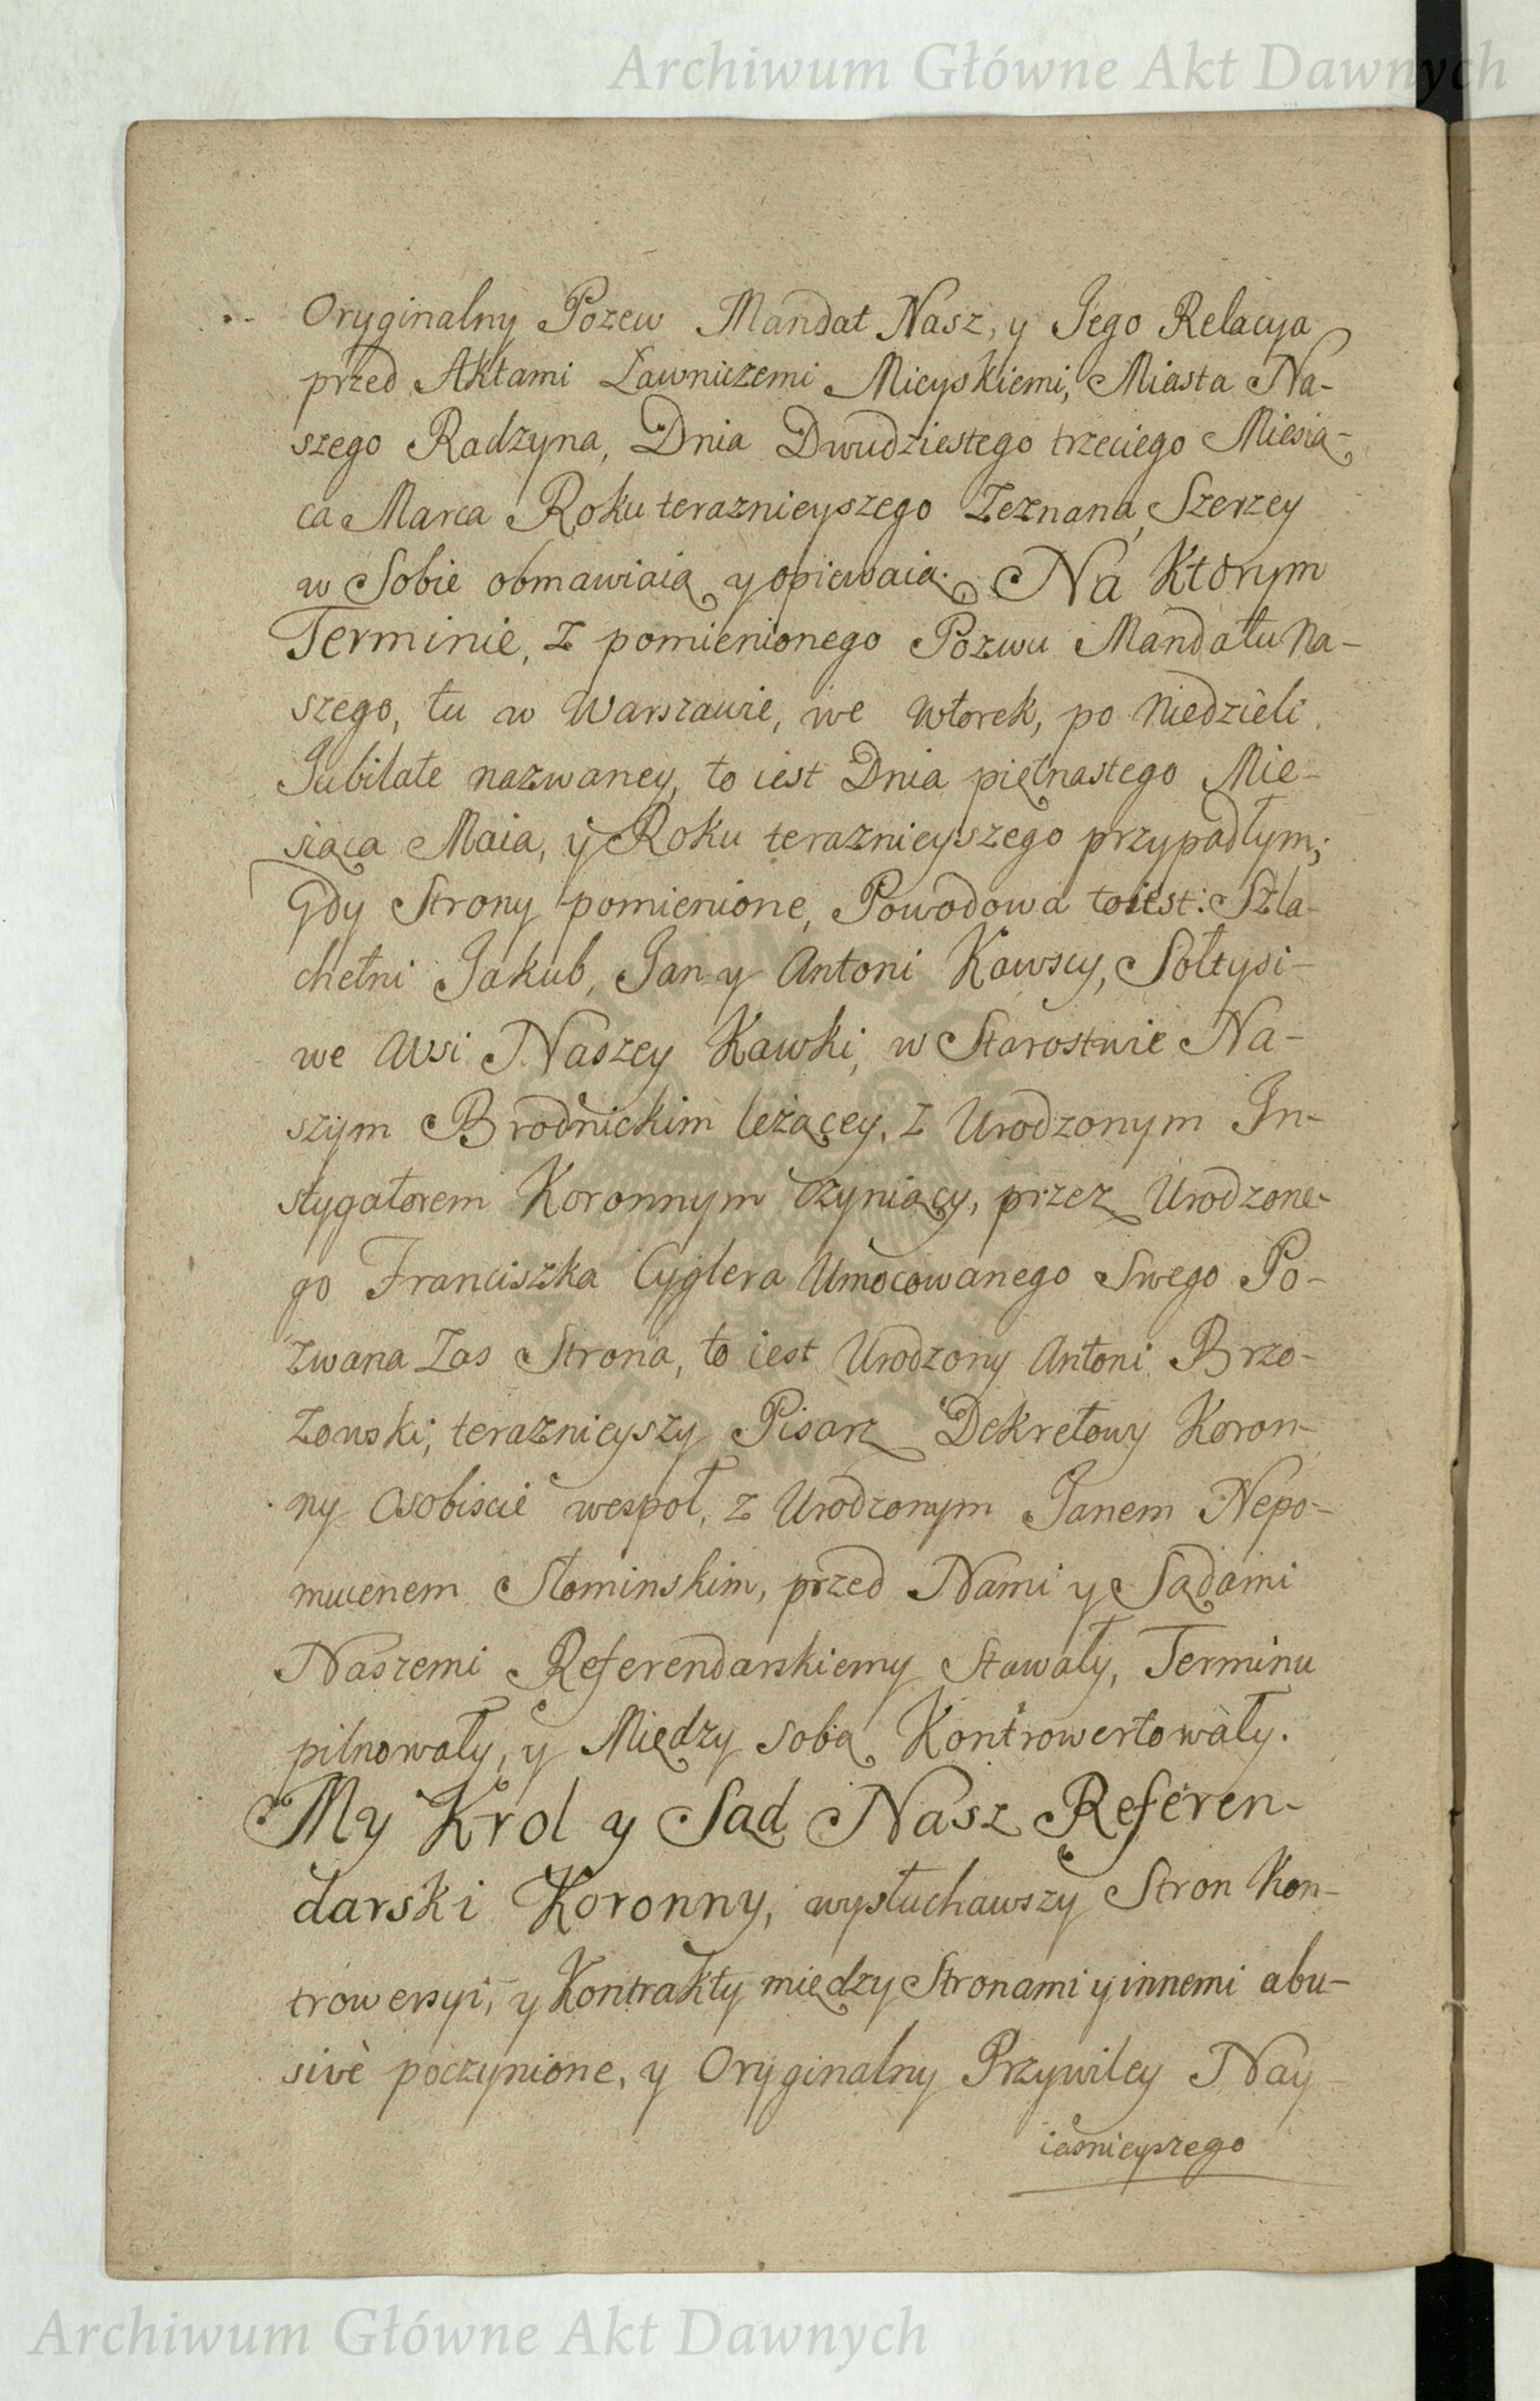 Archiwum Główne Akt Dawnych
Oryginalny Pozew Mandat Nasz, y Jego Relacya
przed Aktami Ławniczemi Mieyskiemi, Miasta Na-
szego Radzyna, Dnia Dwudziestego trzeciego Miesią-
ca Marca Roku teraznieyszego Zeznana, Szerzey
w Sobie obmawiaią y opiewaią. Na Ktorym
Terminie, z pomienionego Pozwu Mandatu Na-
szego, tu w Warszawie, we Wtorek, po Niedzieli
Jubilate nazwaney, to iest Dnia piętnastego Mie-
siąca Maia, y Roku teraznieyszego przypadłym;
Gdy Strony pomienione, Powodowa toiest: Szla-
chetni Jakub, Jan y Antoni Kawscy, Sołtysi-
we Wsi Naszey Kawki, w Starostwie Na-
szym Brodnickim leżącey, z Urodzonym In-
stygatorem Koronnym czyniący, przez Urodzone-
go Franciszka Cyglera Umocowanego Swego Po-
zwana Zas Strona, to iest Urodzony Antoni Brzo-
zowski, teraznieyszy Pisarz Dekretowy Koron-
ny Osobiscie wespoł, z Urodzonym Janem Nepo-
mucenem Słominskim, przed Nami y Sądami
Naszemi Referendarskiemy Stawały, Terminu
pilnowały, y Między sobą Kontrowertowały.
My Krol y Sąd Nasz Referen-
darski Koronny, wysłuchawszy Stron Kon-
trowersyi, y Kontrakty między Stronami y innemi abu-
sivè poczynione, y Oryginalny Przywiley Nay-
iasnieyszego
Archiwum Główne Akt Dawnych